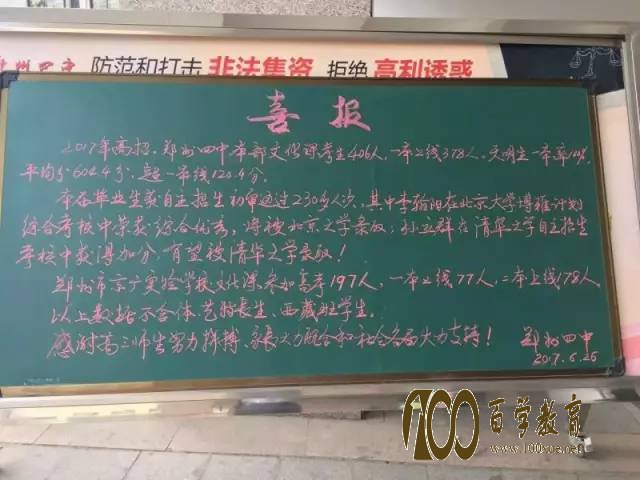 郑州四中 防范和打击 非法集资 拒绝 高利诱惑
喜报
2017年高招，郑州四中本部文化课考生406人，一本上线378人，文明生一本率100%，
平均分604.4分，超一本线120.4分。
本届毕业生获自主招生初审通过230多人次，其中李翰阳在北京大学博雅计划
综合考核中荣获综合优秀，将被北京大学录取；孙立群在清华大学自主招生
考核中获得加分，有望被清华大学录取！
郑州市京广实验学校文化课参加高考197人，一本上线77人，二本上线178人。
以上数据不含体、艺特长生、西藏班学生。
感谢高三师生努力拼搏、家长大力配合和社会各届大力支持！
郑州四中
2017.6.25
100百学教育
www.100xue.net